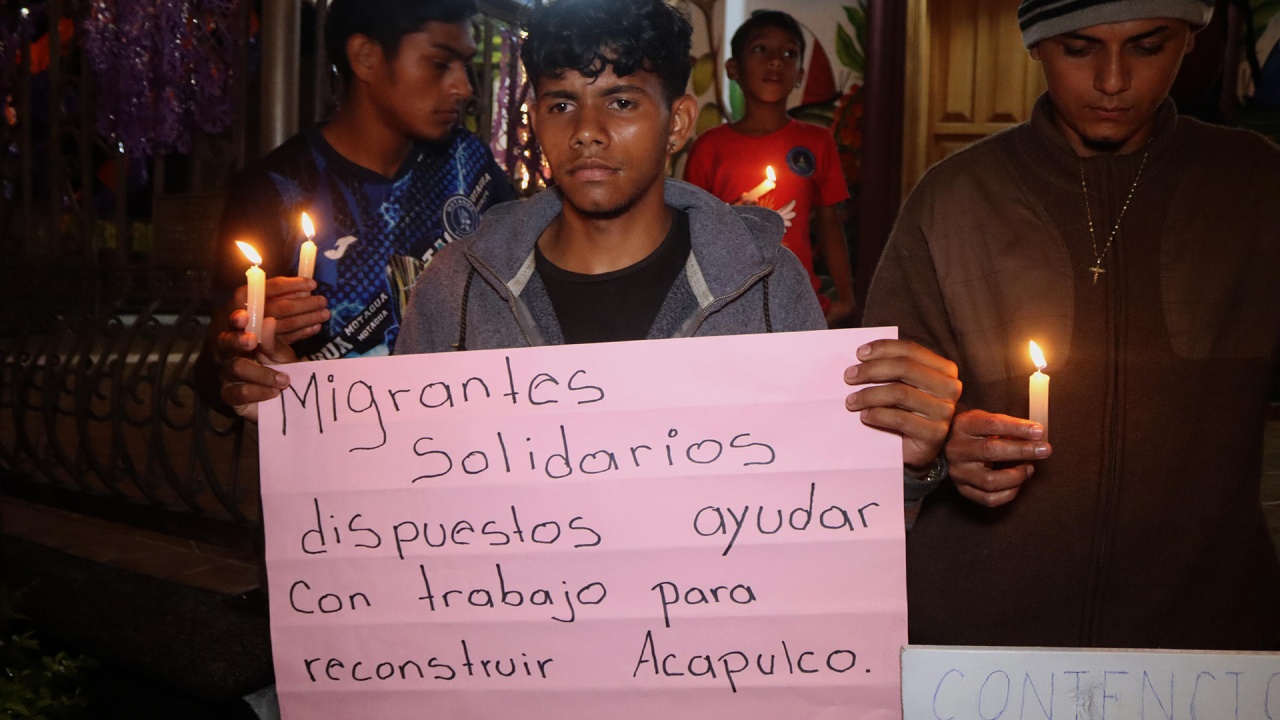 Migrantes
Solidarios
dispuestos ayudar
Con trabajo para
reconstruir Acapulco.
MOTAGUA
MOTAGUA